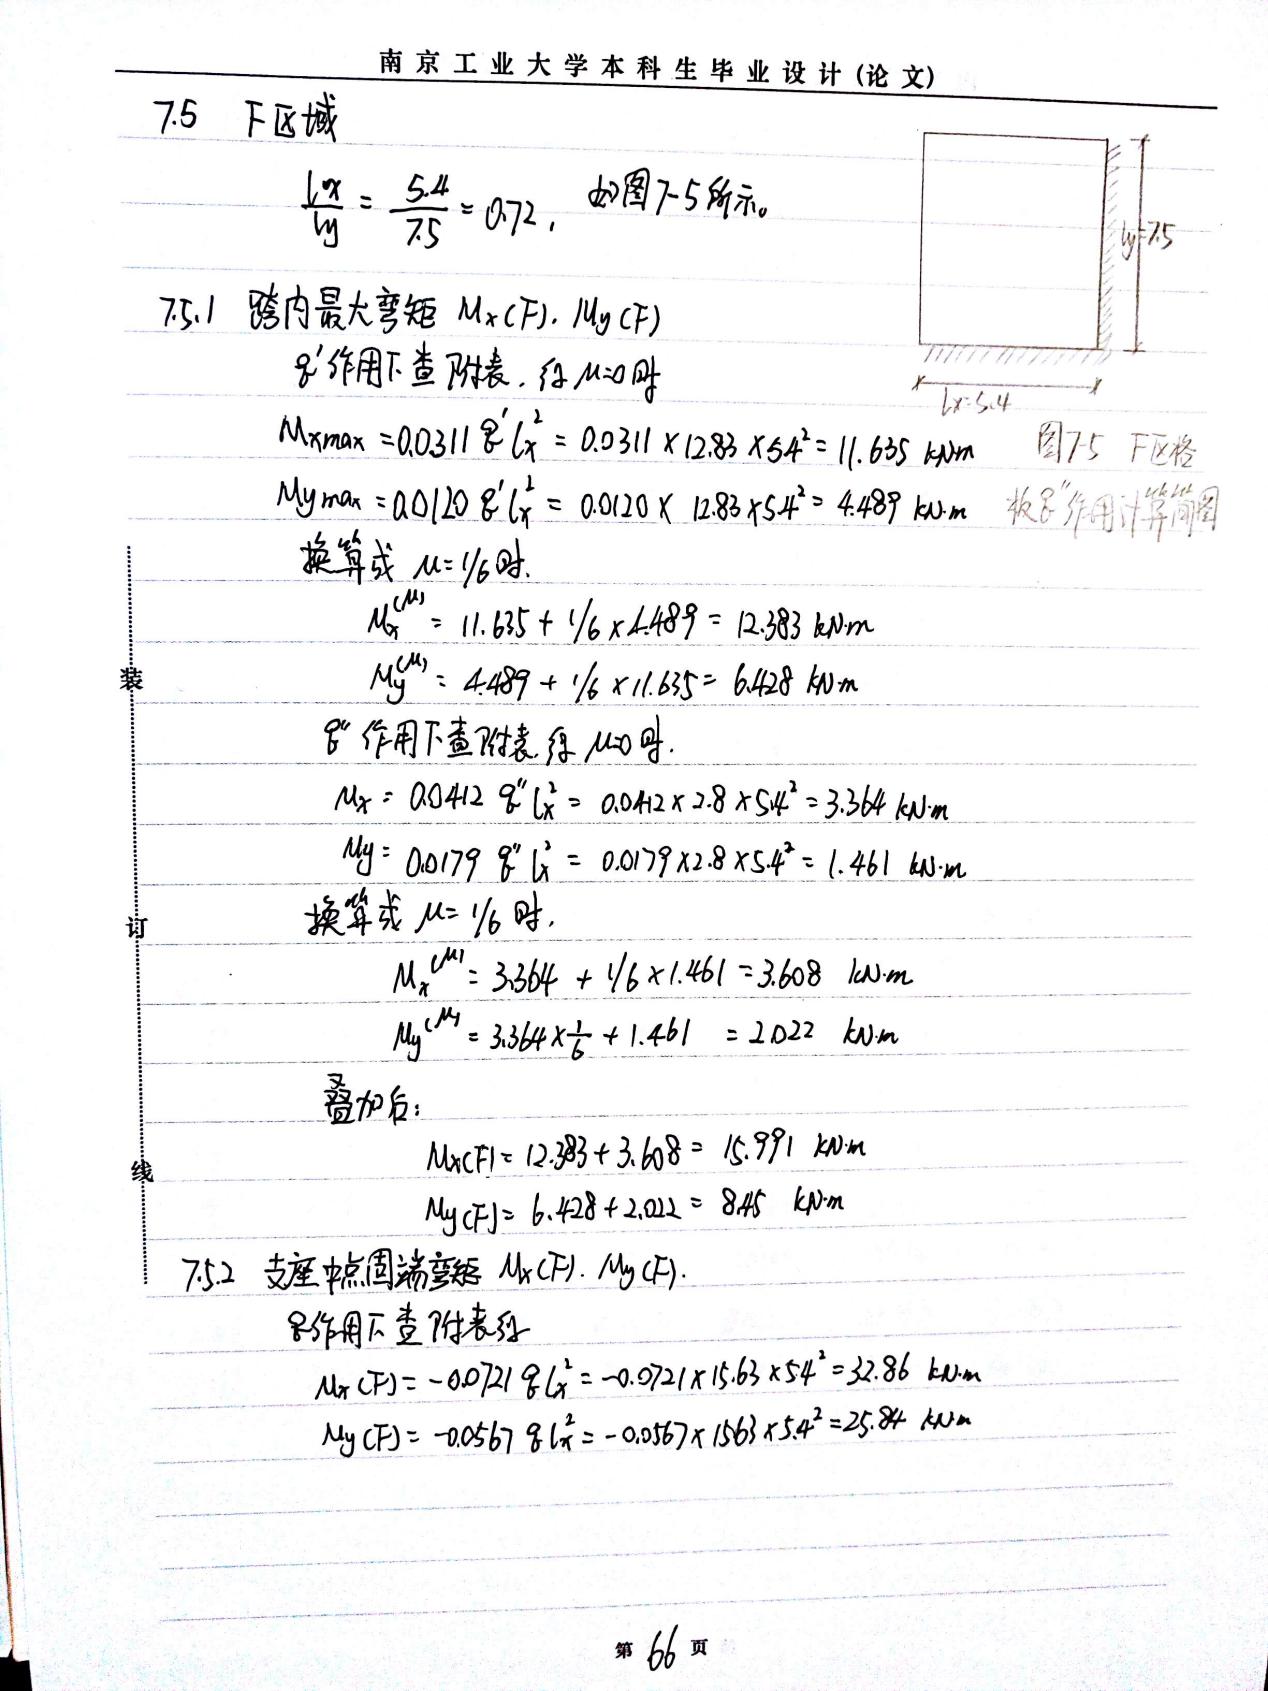 南京工业大学本科生毕业设计(论文)
7.5 F区域
lx/ly = 5.4/7.5 = 0.72, 如图7-5所示。
ly=7.5
lx=5.4
图7-5 F区格
板q"作用计算简图
7.5.1 跨内最大弯矩 Mx(F). My(F)
q'作用下查附表,得 μ=0时
Mxmax =0.0311 q' lx² = 0.0311 × 12.83 × 5.4² = 11.635 kN·m
Mymax = 0.0120 q' lx² = 0.0120 × 12.83 × 5.4² = 4.489 kN·m
换算成 μ=1/6时.
Mx(μ) = 11.635 + 1/6 × 4.489 = 12.383 kN·m
My(μ) = 4.489 + 1/6 × 11.635 = 6.428 kN·m
q" 作用下查附表,得 μ=0时.
Mx = 0.0412 q" lx² = 0.0412 × 2.8 × 5.4² = 3.364 kN·m
My = 0.0179 q" lx² = 0.0179 × 2.8 × 5.4² = 1.461 kN·m
换算成 μ= 1/6 时,
Mx(μ) = 3.364 + 1/6 × 1.461 = 3.608 kN·m
My(μ) = 3.364 × 1/6 + 1.461 = 2.022 kN·m
叠加后:
Mx(F) = 12.383 + 3.608 = 15.991 kN·m
My(F) = 6.428 + 2.022 = 8.45 kN·m
7.5.2 支座中点固端弯矩 Mx(F). My(F).
q作用下查附表得
Mx(F) = -0.0721 q lx² = -0.0721 × 15.63 × 5.4² = 32.86 kN·m
My(F) = -0.0567 q lx² = -0.0567 × 15.63 × 5.4² = 25.84 kN·m
装
订
线
第 66 页